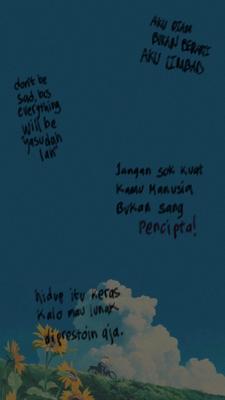 AKU DIAM
BUKAN BERARTI
AKU LIMBAD
don't be
sad, bcs
everything
will be
yasudah
lah
Jangan sok kuat
Kamu Manusia
Bukan sang
Pencipta!
hidup itu keras
kalo mau lunak
diprestoin aja.